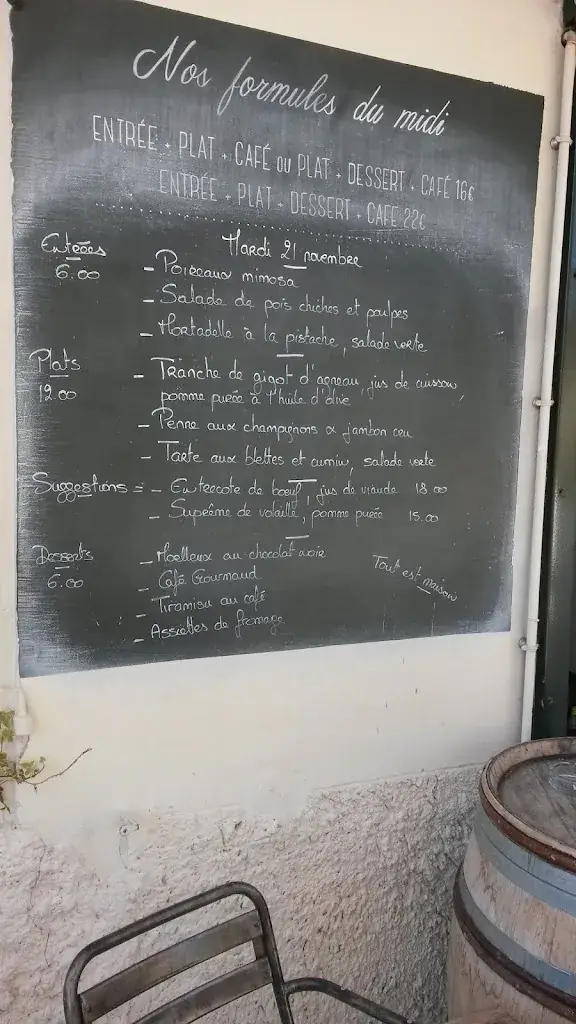 Nos formules du midi
ENTRÉE + PLAT + CAFÉ ou PLAT + DESSERT + CAFÉ 16€
ENTRÉE + PLAT + DESSERT + CAFE 22€
Mardi 21 novembre
Entrées
6.00
- Poireaux mimosa
- Salade de pois chiches et poulpes
- Mortadelle à la pistache, salade verte
Plats
12.00
- Tranche de gigot d'agneau, jus de cuisson,
pomme purée à l'huile d'olive
- Penne aux champignons & jambon cru
- Tarte aux blettes et cumin, salade verte
Suggestions = - Entrecote de bœuf, jus de viande 18.00
- Suprême de volaille, pomme purée 15.00
Desserts
6.00
- Moelleux au chocolat noir
- Café Gourmand
- Tiramisu au café
- Assiettes de fromage
Tout est maison